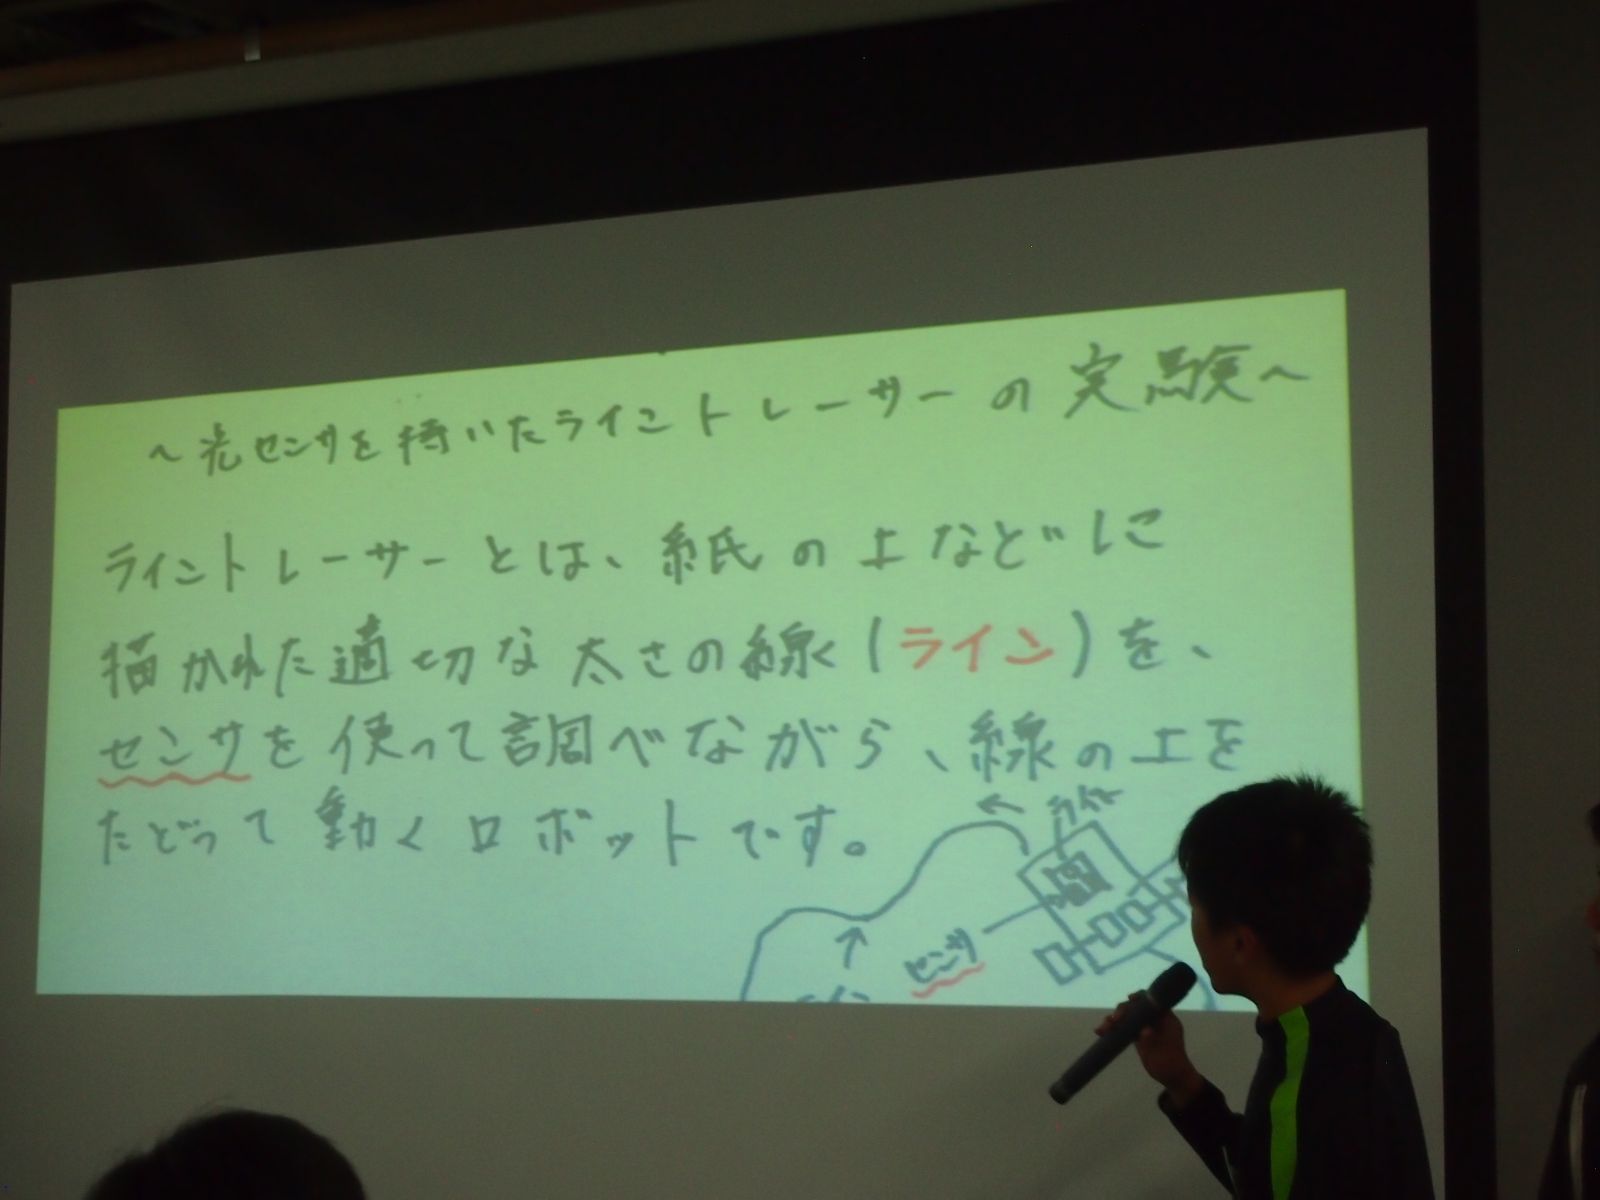 ～光センサを持いたライントレーサーの実験～
ライントレーサーとは、紙の上などに
描かれた適切な太さの線(ライン)を、
センサを使って調べながら、線の上を
たどって動くロボットです。
ライン
センサ